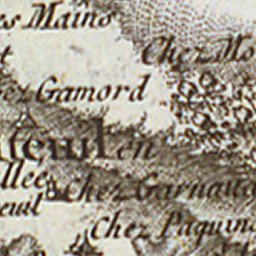 s Mains
t
Chez Mo
ez Gamord
teuil en
llee
Chez Garnaud
euil
Chez Paquin